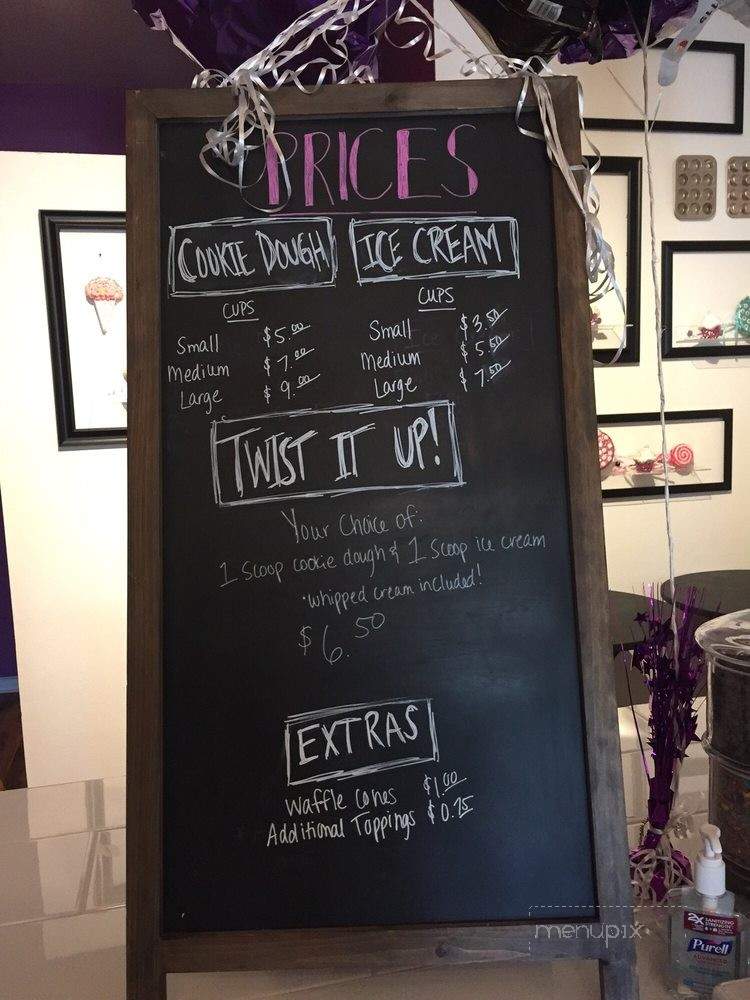 PRICES
COOKIE DOUGH
CUPS
Small $5.00
Medium $7.00
Large $9.00
ICE CREAM
CUPS
Small $3.50
Medium $5.50
Large $7.50
TWIST IT UP!
Your Choice of:
1 Scoop cookie dough & 1 Scoop ice cream
•whipped cream included!
$6.50
EXTRAS
Waffle Cones $1.00
Additional Toppings $0.25
menupix
2X SANITIZING STRENGTH
Purell
ADVANCED